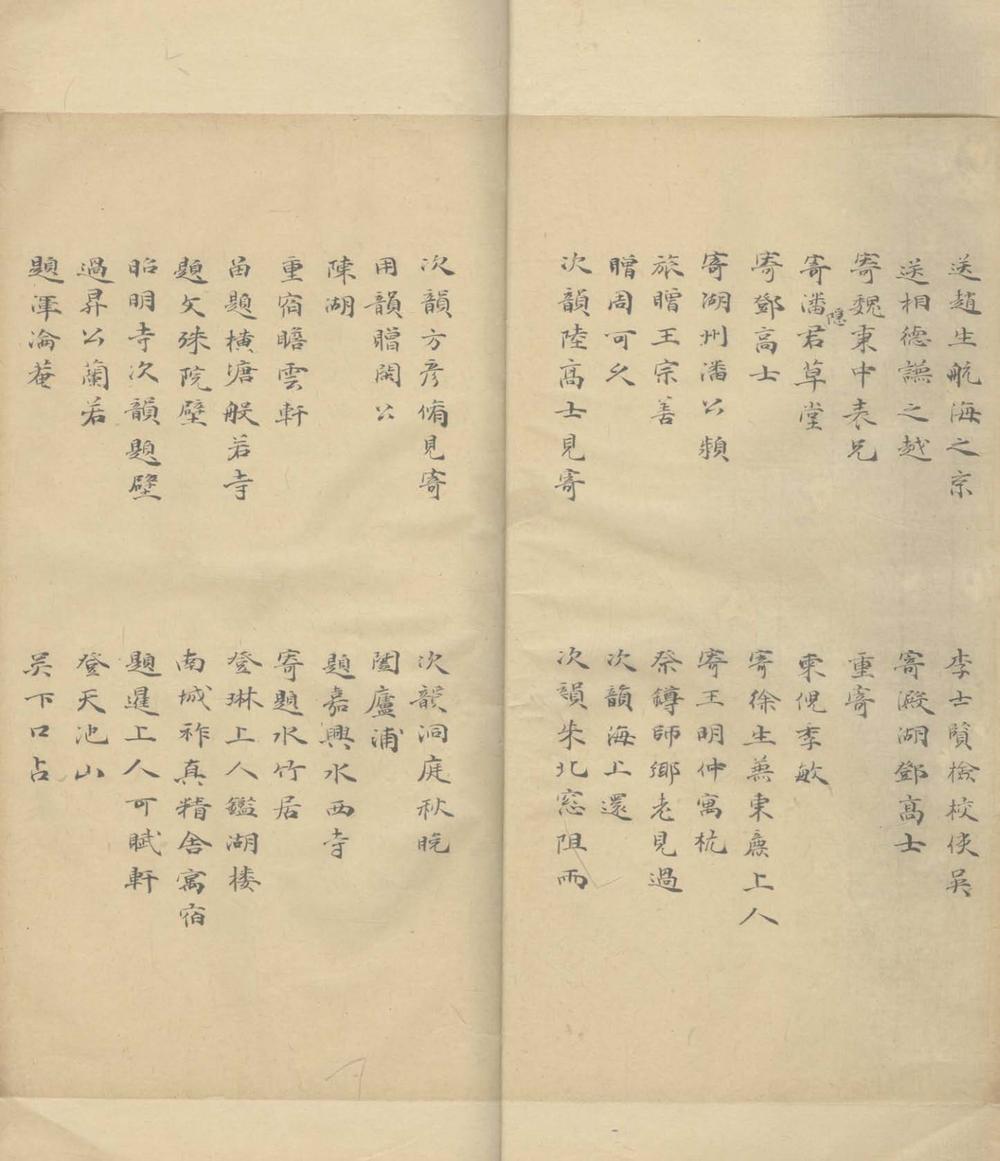 送趙生航海之京
李士賢檢校使吳
送相德謙之越
寄澱湖鄧高士
寄魏東中表兄
重寄
寄潘隱君草堂
柬倪季敏
寄鄧高士
寄徐生兼柬廉上人
寄湖州潘公頻
寄王明仲寓杭
旅贈王宗善
祭鏄師鄉老見過
贈周可久
次韻海上還
次韻陸高士見寄
次韻朱北窓阻雨
次韻方彥脩見寄
次韻洞庭秋晚
用韻贈閑公
闔廬浦
陳湖
題嘉興水西寺
重宿瞻雲軒
寄題水竹居
畱題橫塘般若寺
登琳上人鑑湖楼
題文殊院壁
南城祚真精舍寓宿
昭明寺次韻題壁
題暹上人可賦軒
過昇公蘭若
登天池山
題渾淪菴
吴下口占